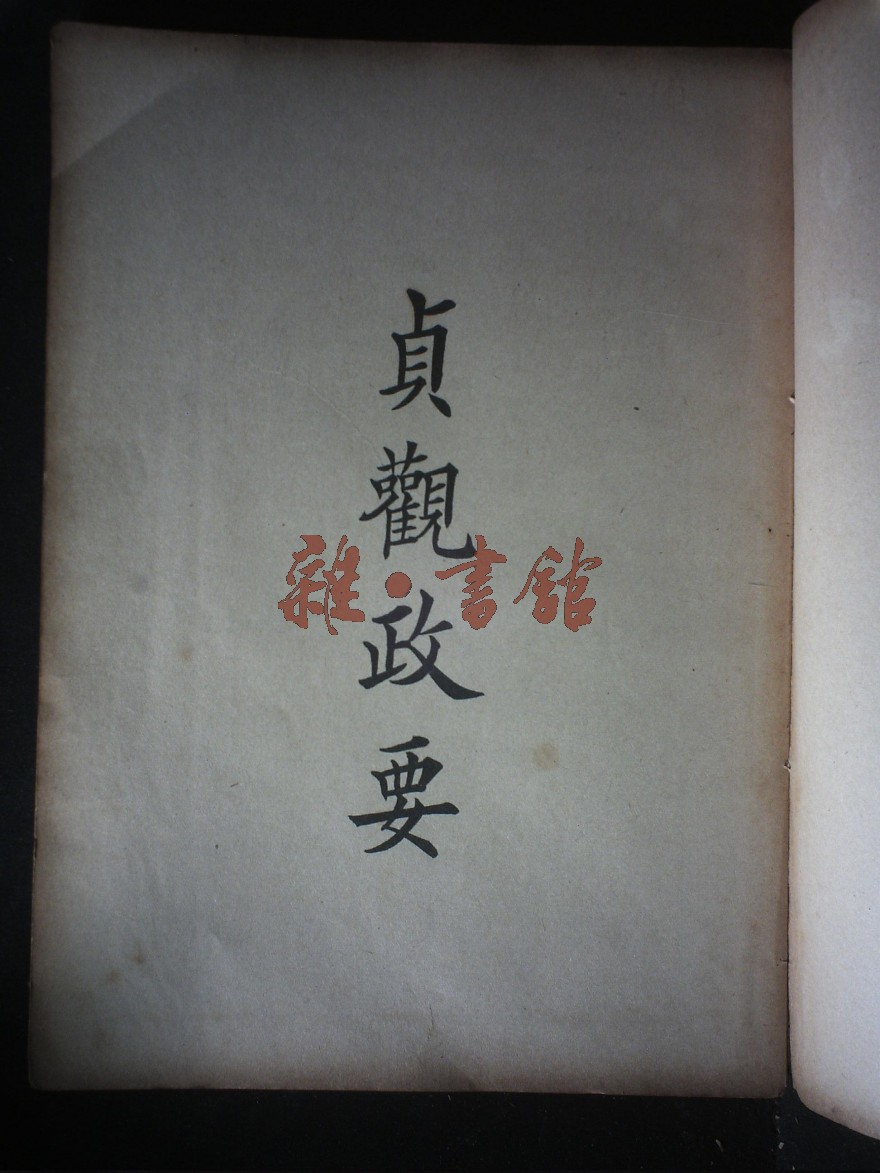 貞觀政要
雜·書館